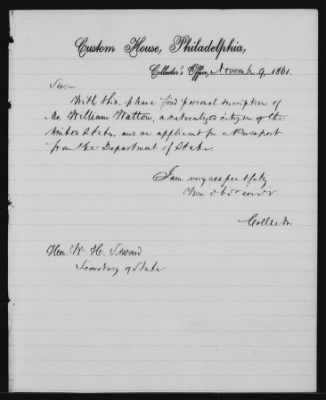 Custom House, Philadelphia,
Collector's Office, November 9, 1861.
Sir:—
With this, please find personal description of
Mr William Watton, a naturalized citizen of the
United States, and an applicant for a Passport
from the Department of State.
I am very respectfully
Your obdt servt
Collector
Hon. W. H. Seward
Secretary of State